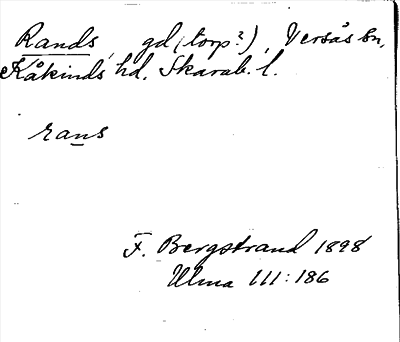 Rands, gd (torp?), Versås sn,
Kåkinds hd. Skarab. l.
rans
F. Bergstrand 1898
Ulma III:186